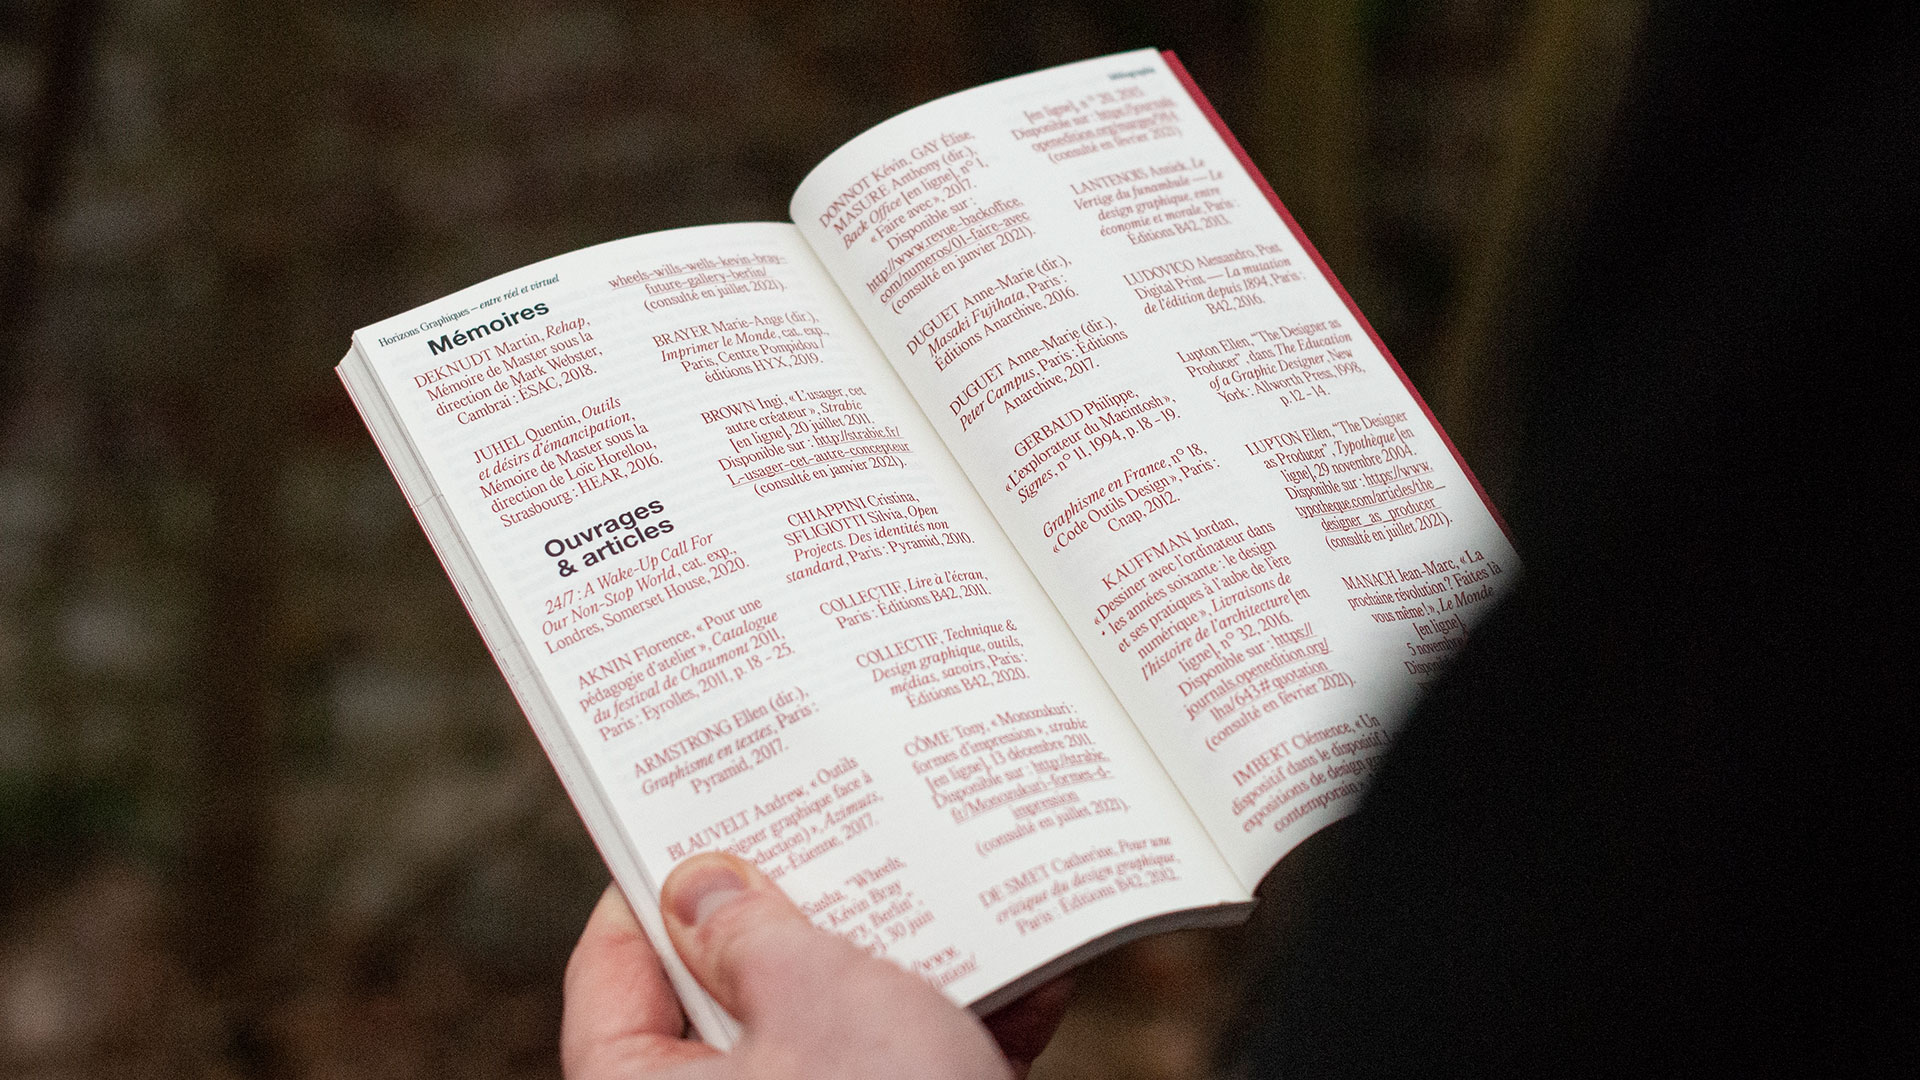 Horizons Graphiques — entre réel et virtuel
Mémoires
DEKNUDT Martin, Rehap,
Mémoire de Master sous la
direction de Mark Webster,
Cambrai : ÉSAC, 2018.
JUHEL Quentin, Outils
et désirs d'émancipation,
Mémoire de Master sous la
direction de Loïc Horellou,
Strasbourg : HEAR, 2016.
Ouvrages
& articles
24/7 : A Wake-Up Call For
Our Non-Stop World, cat. exp.,
Londres, Somerset House, 2020.
AKNIN Florence, « Pour une
pédagogie d'atelier », Catalogue
du festival de Chaumont 2011,
Paris : Eyrolles, 2011, p. 18 – 25.
ARMSTRONG Ellen (dir.),
Graphisme en textes, Paris :
Pyramid, 2017.
BLAUVELT Andrew, « Outils
designer graphique face à
duction) », Azimuts,
nt-Étienne, 2017.
Sasha, "Wheels,
Kévin Bray
ry, Berlin",
], 30 juin
/www.
wheels-wills-wells-kevin-bray-
future-gallery-berlin/
(consulté en juillet 2021).
BRAYER Marie-Ange (dir.),
Imprimer le Monde, cat. exp.,
Paris, Centre Pompidou/
éditions HYX, 2019.
BROWN Ingi, « L'usager, cet
autre créateur », Strabic
[en ligne], 20 juillet 2011.
Disponible sur : http://strabic.fr/
L-usager-cet-autre-concepteur
(consulté en janvier 2021).
CHIAPPINI Cristina,
SFLIGIOTTI Silvia, Open
Projects. Des identités non
standard, Paris : Pyramid, 2010.
COLLECTIF, Lire à l'écran,
Paris : Éditions B42, 2011.
COLLECTIF, Technique &
Design graphique, outils,
médias, savoirs, Paris :
Éditions B42, 2020.
CÔME Tony, « Monozukuri :
formes d'impression », strabic
[en ligne], 13 décembre 2011.
Disponible sur : http://strabic.
fr/Monozukuri-formes-d-
impression
(consulté en juillet 2021).
DE SMET Catherine, Pour une
critique du design graphique,
Paris : Éditions B42, 2012.
DONNOT Kévin, GAY Élise,
MASURE Anthony (dir.),
Back Office [en ligne], n° 1,
« Faire avec », 2017.
Disponible sur :
http://www.revue-backoffice.
com/numeros/01-faire-avec
(consulté en janvier 2021).
DUGUET Anne-Marie (dir.),
Masaki Fujihata, Paris :
Éditions Anarchive, 2016.
DUGUET Anne-Marie (dir.),
Peter Campus, Paris : Éditions
Anarchive, 2017.
GERBAUD Philippe,
« L'explorateur du Macintosh »,
Signes, n° 11, 1994, p. 18 – 19.
Graphisme en France, n° 18,
« Code Outils Design », Paris :
Cnap, 2012.
KAUFFMAN Jordan,
« Dessiner avec l'ordinateur dans
les années soixante : le design
et ses pratiques à l'aube de l'ère
numérique », Livraisons de
l'histoire de l'architecture [en
ligne], n° 32, 2016.
Disponible sur : https://
journals.openedition.org/
lha/643#quotation
(consulté en février 2021).
IMBERT Clémence, « Un
dispositif dans le dispositif
expositions de design
contemporain
[en ligne], n° 20, 2015
Disponible sur : https://journals.
openedition.org/marges/
(consulté en février 2021)
LANTENOIS Annick, Le
Vertige du funambule — Le
design graphique, entre
économie et morale, Paris :
Éditions B42, 2013.
LUDOVICO Alessandro, Post
Digital Print — La mutation
de l'édition depuis 1894, Paris :
B42, 2016.
Lupton Ellen, "The Designer as
Producer", dans The Education
of a Graphic Designer, New
York : Allworth Press, 1998,
p. 12 – 14.
LUPTON Ellen, "The Designer
as Producer", Typothèque [en
ligne], 29 novembre 2004.
Disponible sur : https://www.
typotheque.com/articles/the_
designer_as_producer
(consulté en juillet 2021).
MANACH Jean-Marc, « La
prochaine révolution ? Faites là
vous même! », Le Monde
[en ligne],
5 novembre